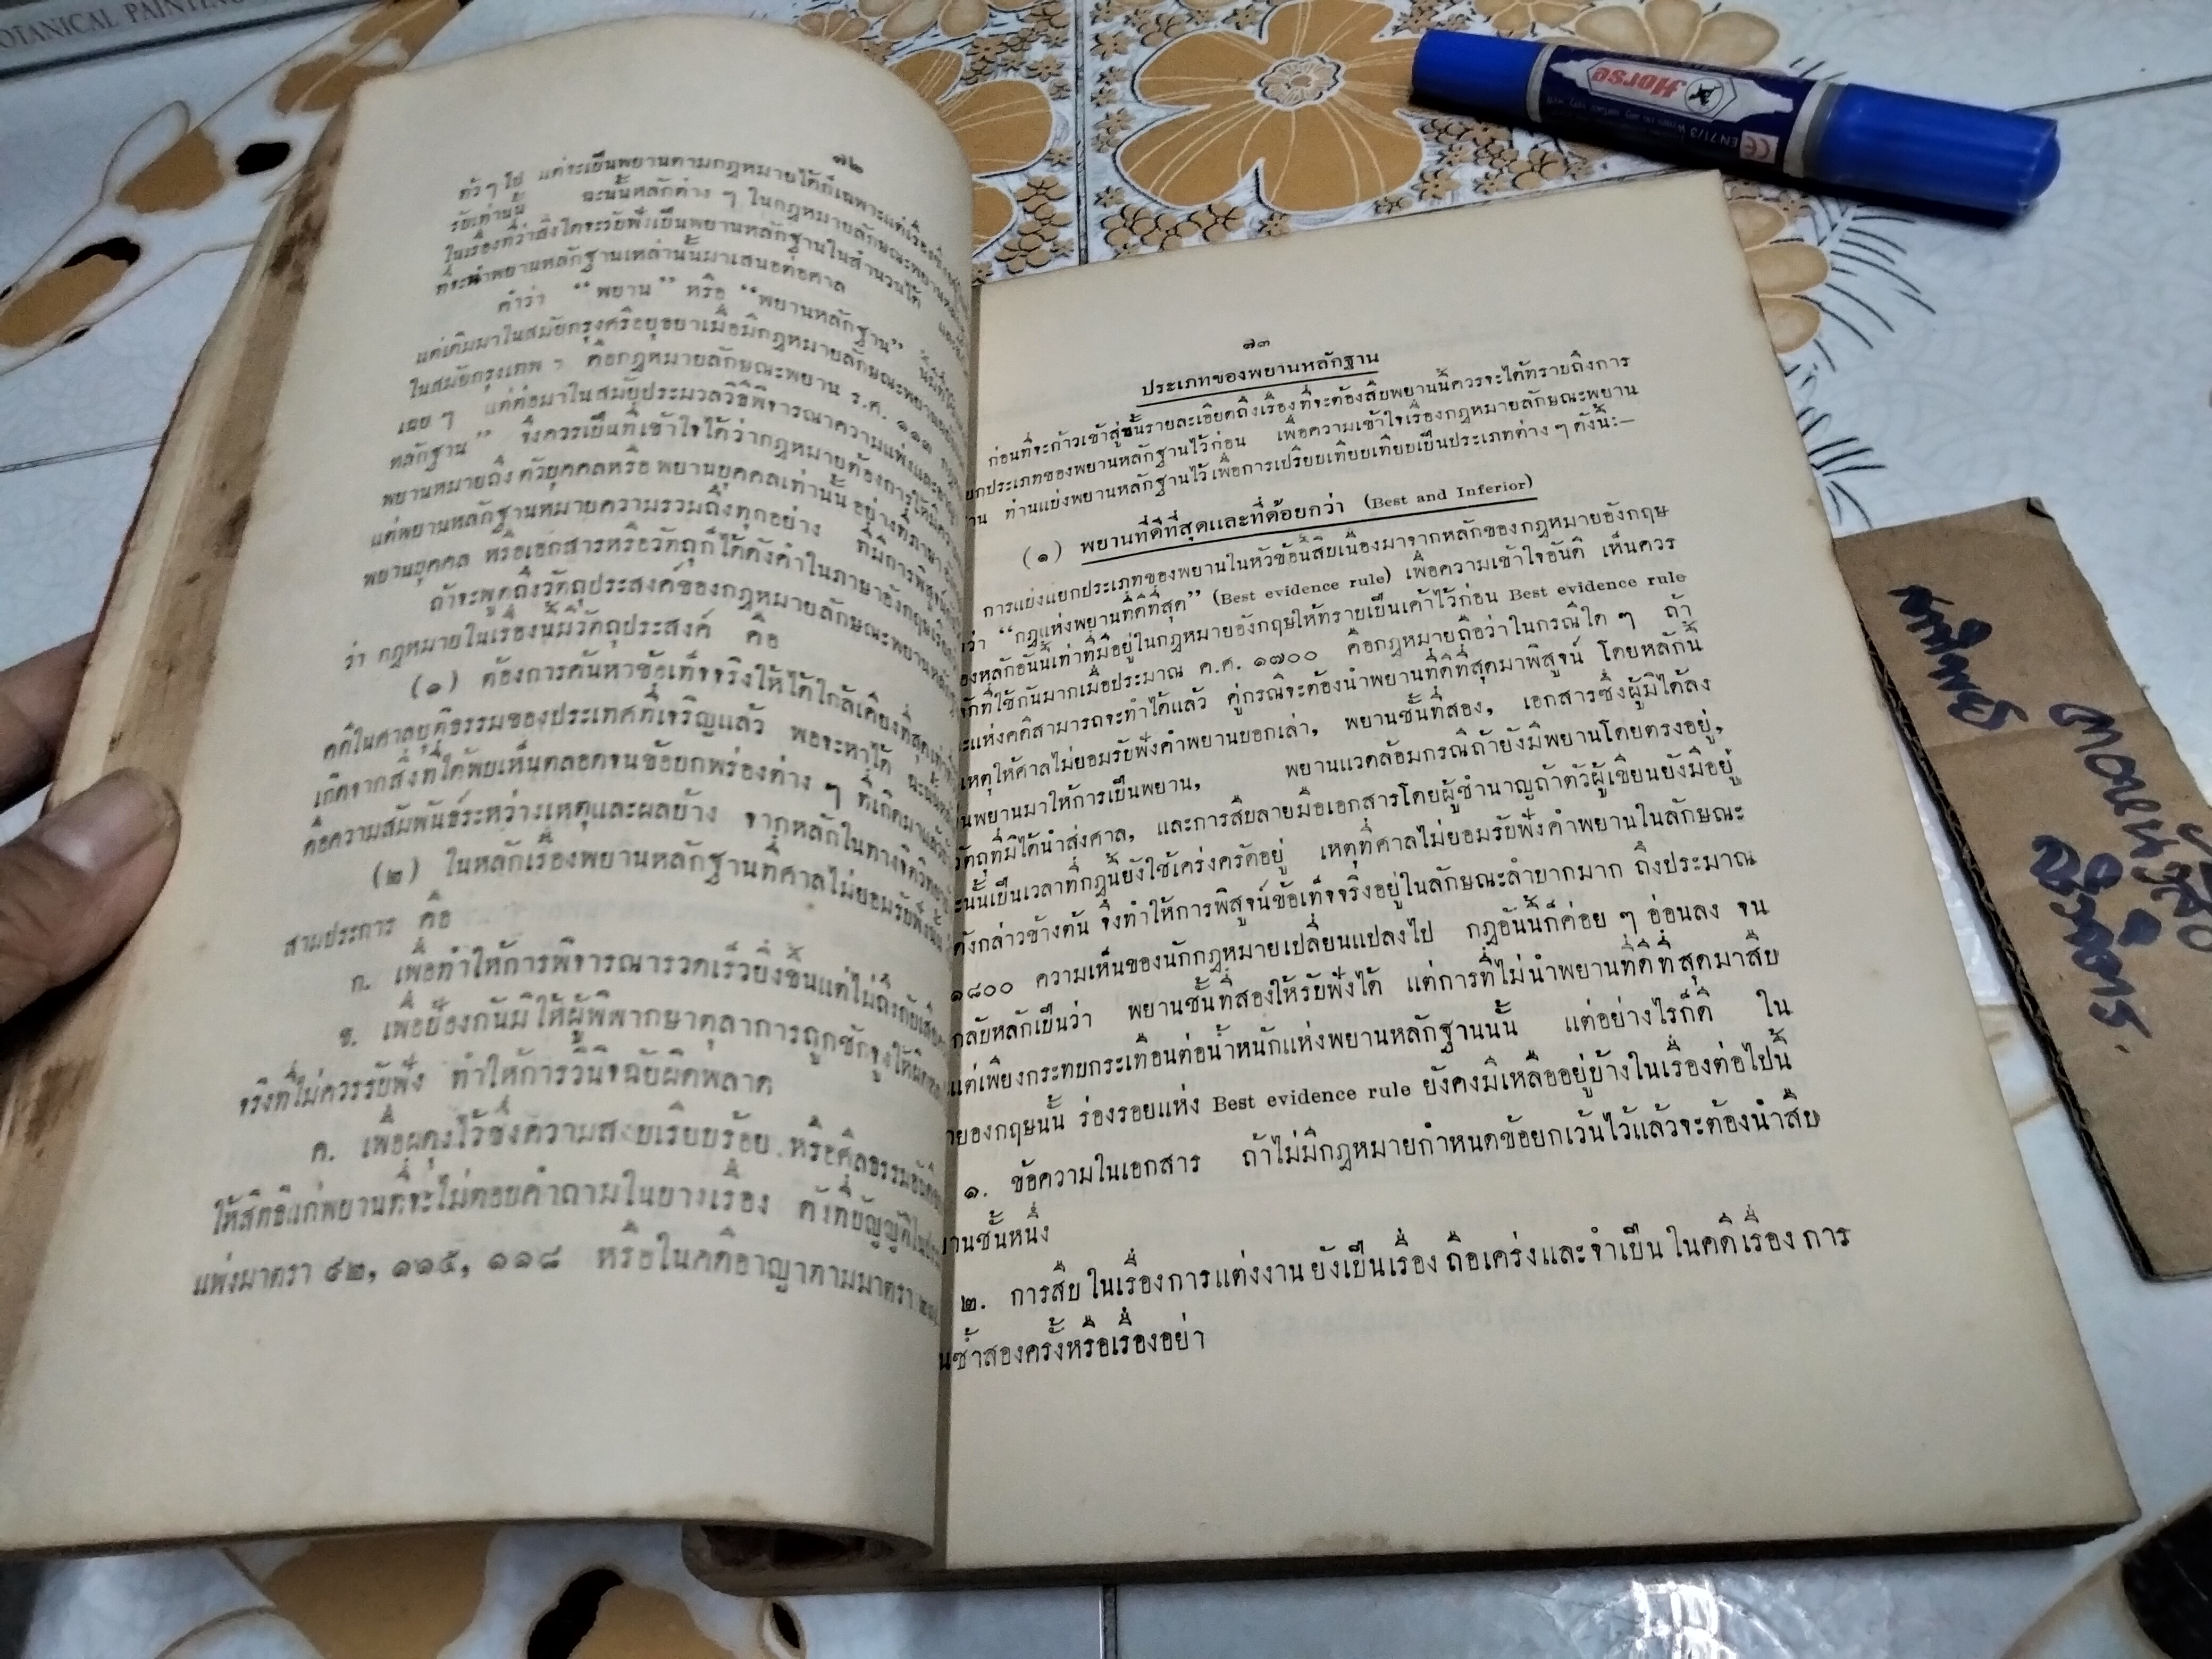 BOTANICAL PAINTING
๗๒
แต่จะเป็นพยานตามกฎหมายได้ก็เฉพาะแต่เรื่อง
รับเท่านั้น ฉะนั้นหลักต่าง ๆ ในกฎหมายลักษณะพยาน
ในเรื่องที่ว่าสิ่งใดจะรับฟังเป็นพยานหลักฐานในสำนวนได้
ที่จะนำพยานหลักฐานเหล่านั้นมาเสนอต่อศาล
คำว่า “พยาน” หรือ “พยานหลักฐาน”
แต่เดิมมาในสมัยกรุงศรีอยุธยาเมื่อมีกฎหมายลักษณะพยาน
ในสมัยกรุงเทพ ฯ คือกฎหมายลักษณะพยาน ร.ศ. ๑๑๓
เฉย ๆ แต่ต่อมาในสมัยประมวลวิธีพิจารณาความแพ่งและอาญา
หลักฐาน” จึงควรเป็นที่เข้าใจได้ว่ากฎหมายต้องการให้มีความ
พยานหมายถึงตัวบุคคลหรือพยานบุคคลเท่านั้น อย่างที่ภาษา
แต่พยานหลักฐานหมายความรวมถึงทุกอย่าง ที่มีการพิสูจน์
พยานบุคคล หรือเอกสารหรือวัตถุก็ได้ดังคำในภาษาอังกฤษเรียก
ถ้าจะพูดถึงวัตถุประสงค์ของกฎหมายลักษณะพยานหลักฐาน
ว่า กฎหมายในเรื่องนี้มีวัตถุประสงค์ คือ
(๑) ต้องการค้นหาข้อเท็จจริงให้ได้ใกล้เคียงที่สุด
คดีในศาลยุติธรรมของประเทศที่เจริญแล้ว พอจะหาได้
เกิดจากสิ่งที่ได้พบเห็นตลอดจนข้อบกพร่องต่าง ๆ ที่เกิดมาแล้ว
คือความสัมพันธ์ระหว่างเหตุและผลบ้าง จากหลักในทางจิตวิทยา
(๒) ในหลักเรื่องพยานหลักฐานที่ศาลไม่ยอมรับฟังนั้น
สามประการ คือ
ก. เพื่อทำให้การพิจารณารวดเร็วยิ่งขึ้นแต่ไม่ถึงกับเสีย
ข. เพื่อป้องกันมิให้ผู้พิพากษาตุลาการถูกชักจูงให้
จริงที่ไม่ควรรับฟัง ทำให้การวินิจฉัยผิดพลาด
ค. เพื่อผดุงไว้ซึ่งความสงบเรียบร้อย หรือศีลธรรมอันดี
ให้สิทธิแก่พยานที่จะไม่ตอบคำถามในบางเรื่อง ดังที่บัญญัติ
แพ่งมาตรา ๙๒, ๑๑๕, ๑๑๘ หรือในคดีอาญาตามมาตรา
๗๓
ประเภทของพยานหลักฐาน
ก่อนที่จะก้าวเข้าสู่ชั้นรายละเอียดถึงเรื่องที่จะต้องสืบพยานนี้ควรจะได้ทราบถึงการ
ยกประเภทของพยานหลักฐานไว้ก่อน เพื่อความเข้าใจเรื่องกฎหมายลักษณะพยาน
าน ท่านแบ่งพยานหลักฐานไว้เพื่อการเปรียบเทียบเทียบเป็นประเภทต่าง ๆ ดังนี้:—
(๑) พยานที่ดีที่สุดและที่ด้อยกว่า (Best and Inferior)
การแบ่งแยกประเภทของพยานในหัวข้อนี้สืบเนื่องมาจากหลักของกฎหมายอังกฤษ
ว่า “กฎแห่งพยานที่ดีที่สุด” (Best evidence rule) เพื่อความเข้าใจอันดี เห็นควร
องหลักอันนี้เท่าที่มีอยู่ในกฎหมายอังกฤษให้ทราบเป็นเค้าไว้ก่อน Best evidence rule
ักที่ใช้กันมากเมื่อประมาณ ค.ศ. ๑๗๐๐ คือกฎหมายถือว่าในกรณีใด ๆ ถ้า
ะแห่งคดีสามารถจะทำได้แล้ว คู่กรณีจะต้องนำพยานที่ดีที่สุดมาพิสูจน์ โดยหลักนี้
เหตุให้ศาลไม่ยอมรับฟังคำพยานบอกเล่า, พยานชั้นที่สอง, เอกสารซึ่งผู้มิได้ลง
นพยานมาให้การเป็นพยาน, พยานแวดล้อมกรณีถ้ายังมีพยานโดยตรงอยู่,
วัตถุที่มิได้นำส่งศาล, และการสืบลายมือเอกสารโดยผู้ชำนาญถ้าตัวผู้เขียนยังมีอยู่
ะนั้นเป็นเวลาที่กฎนี้ยังใช้เคร่งครัดอยู่ เหตุที่ศาลไม่ยอมรับฟังคำพยานในลักษณะ
ดังกล่าวข้างต้น จึงทำให้การพิสูจน์ข้อเท็จจริงอยู่ในลักษณะลำบากมาก ถึงประมาณ
๑๘๐๐ ความเห็นของนักกฎหมายเปลี่ยนแปลงไป กฎอันนี้ก็ค่อย ๆ อ่อนลง จน
กลับหลักเป็นว่า พยานชั้นที่สองให้รับฟังได้ แต่การที่ไม่นำพยานที่ดีที่สุดมาสืบ
แต่เพียงกระทบกระเทือนต่อน้ำหนักแห่งพยานหลักฐานนั้น แต่อย่างไรก็ดี ใน
ายองกฤษนั้น ร่องรอยแห่ง Best evidence rule ยังคงมีเหลืออยู่บ้างในเรื่องต่อไปนี้
๑. ข้อความในเอกสาร ถ้าไม่มีกฎหมายกำหนดข้อยกเว้นไว้แล้วจะต้องนำสืบ
านชั้นหนึ่ง
๒. การสืบในเรื่องการแต่งงาน ยังเป็นเรื่อง ถือเคร่งและจำเป็น ในคดีเรื่อง การ
นซ้ำสองครั้งหรือเรื่องอย่า
Horse
EN 71/3
CE